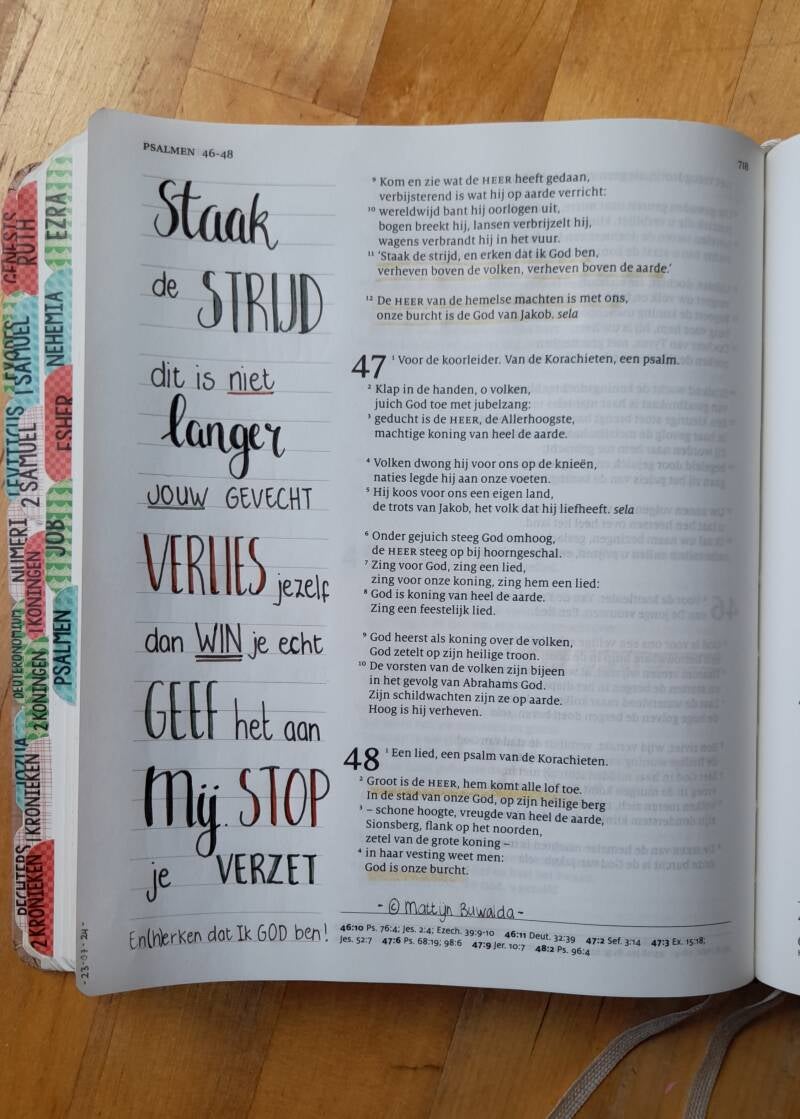 PSALMEN 46-48
718
Staak
de STRIJD
dit is niet
langer
JOUW GEVECHT
VERLIES jezelf
dan WIN je echt
GEEF het aan
Mij. STOP
je VERZET
En(h)erken dat Ik GOD ben!
-23-07-24-
⁹ Kom en zie wat de HEER heeft gedaan,
verbijsterend is wat hij op aarde verricht:
¹⁰ wereldwijd bant hij oorlogen uit,
bogen breekt hij, lansen verbrijzelt hij,
wagens verbrandt hij in het vuur.
¹¹ ‘Staak de strijd, en erken dat ik God ben,
verheven boven de volken, verheven boven de aarde.’
¹² De HEER van de hemelse machten is met ons,
onze burcht is de God van Jakob. sela
47 ¹ Voor de koorleider. Van de Korachieten, een psalm.
² Klap in de handen, o volken,
juich God toe met jubelzang:
³ geducht is de HEER, de Allerhoogste,
machtige koning van heel de aarde.
⁴ Volken dwong hij voor ons op de knieën,
naties legde hij aan onze voeten.
⁵ Hij koos voor ons een eigen land,
de trots van Jakob, het volk dat hij liefheeft. sela
⁶ Onder gejuich steeg God omhoog,
de HEER steeg op bij hoorngeschal.
⁷ Zing voor God, zing een lied,
zing voor onze koning, zing hem een lied:
⁸ God is koning van heel de aarde.
Zing een feestelijk lied.
⁹ God heerst als koning over de volken,
God zetelt op zijn heilige troon.
¹⁰ De vorsten van de volken zijn bijeen
in het gevolg van Abrahams God.
Zijn schildwachten zijn ze op aarde.
Hoog is hij verheven.
48 ¹ Een lied, een psalm van de Korachieten.
² Groot is de HEER, hem komt alle lof toe.
In de stad van onze God, op zijn heilige berg
³ – schone hoogte, vreugde van heel de aarde,
Sionsberg, flank op het noorden,
zetel van de grote koning –
⁴ in haar vesting weet men:
God is onze burcht.
- © Mattijn Buwalda -
46:10 Ps. 76:4; Jes. 2:4; Ezech. 39:9-10 46:11 Deut. 32:39 47:2 Sef. 3:14 47:3 Ex. 15:18;
Jes. 52:7 47:6 Ps. 68:19; 98:6 47:9 Jer. 10:7 48:2 Ps. 96:4
GENESIS
RUTH
EZRA
EXODUS
1 SAMUEL
NEHEMIA
LEVITICUS
2 SAMUEL
ESHER
NUMERI
1 KONINGEN
JOB
DEUTERONOMIUM
2 KONINGEN
PSALMEN
JOZUA
1 KRONIEKEN
RECHTERS
2 KRONIEKEN